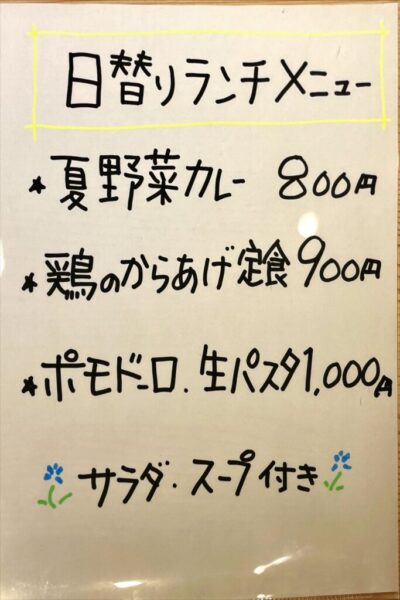 日替りランチメニュー
★夏野菜カレー 800円
★鶏のからあげ定食900円
★ポモドーロ.生パスタ1,000円
サラダ・スープ付き